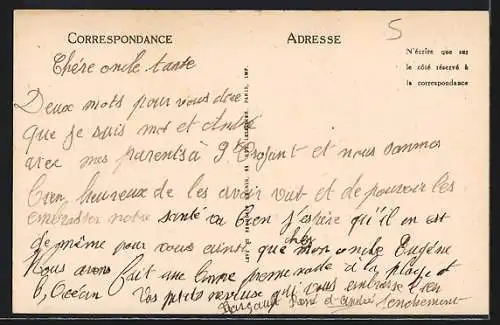 CORRESPONDANCE
ADRESSE
5
N'écrire que sur
le côté réservé à
la correspondance
Chére oncle tante
Deux mots pour vous dire
que je suis moi et André
avec mes parents à St Trojant et nous sommes
bien heureux de les avoir vut et de pouvoir les
embrasser notre santé va bien j'espère qu'il en est
de même pour vous ainsi que chez mon oncle Eugène
Nous avons fait une bonne promenade à la plage et
l'Océan Vos petits neveux qui vous embrasse bien
tendrement